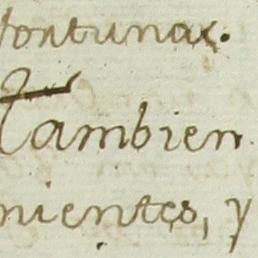 fortunas.
Tambien
nientes, y